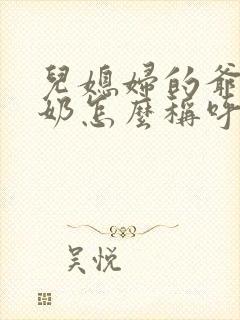 兒媳婦的爺
奶怎麼稱呼
吴悦